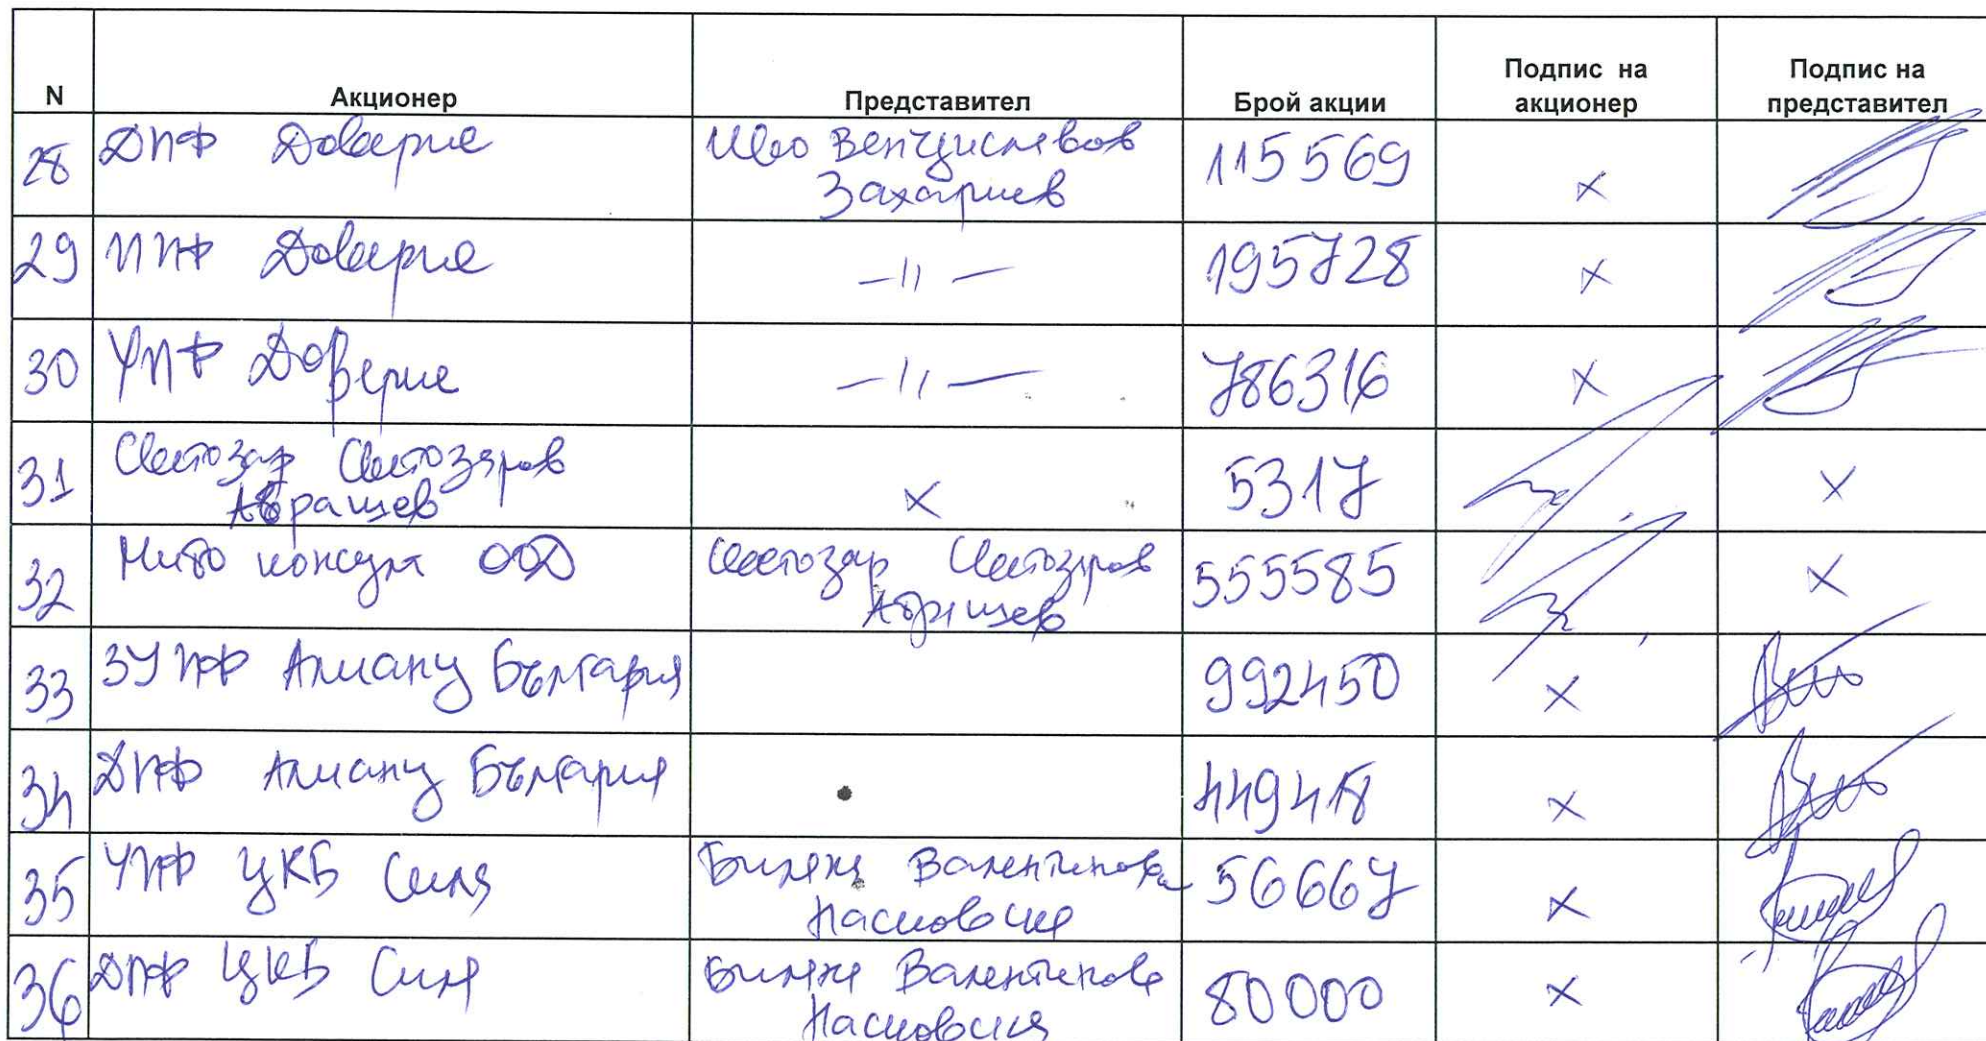 N Акционер Представител Брой акции Подпис на акционер Подпис на представител
28 ДПФ Доверие Иво Венциславов 115569 x
Захариев
29 ППФ Доверие —"— 195728 x
30 УПФ Доверие —"— 786316 x
31 Светозар Светозаров x 5317 x
Абрашев
32 консулт ООД Светозар Светозаров 555585 x
Абрашев
33 ЗУПФ Алианц България 992450 x
34 ДПФ Алианц България x
35 УПФ ЦКБ Сила Биляна Валентинова 56667 x
36 ДПФ ЦКБ Сила Биляна Валентинова 80000 x